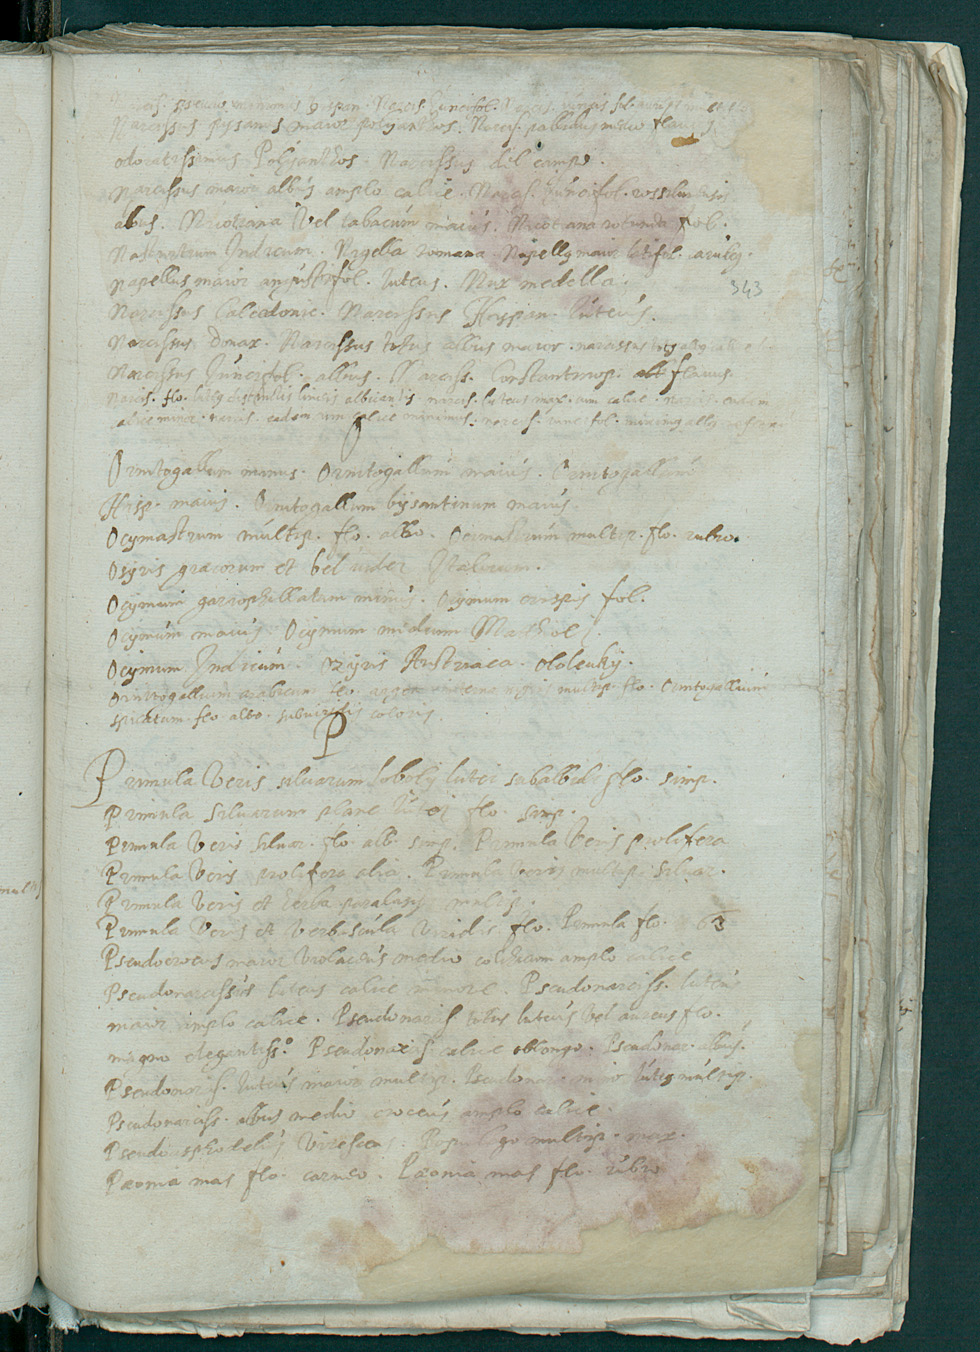 Narcis. Juncifol.
Narcissus pisanus maior polyanthos. Narcis. pallidus medio flavus
odoratissimus Polyanthos. Narcissus del campo.
Narcissus maior albus amplo calice. Narcis. Juncifol.
albus. Nicotiana vel tabacum maius. Nicotiana rotundo fol.
Nasturtium Indicum. Nigella romana. Napellus maior latifol.
napellus maior angustifol. luteus. Nux medella.
343
Narcissus Calcedonic. Narcissus Hispan. luteus.
Narcissus Donax. Narcissus totus albus maior. narcissus
Narcissus Juncifol. albus. Narciss. Constantinop. flavus.
Narcis. flo. lineis albicantis narcis. luteus max. cum calice. narcis. eadem
calice minor. narcis. eadem cum calice minimus. narcis. juncifol.
O
Ornitogallum minus. Ornitogallum maius. Ornitogallum
Hisp. maius. Ornitogallum bisantinum maius.
Ocymastrum multip. flo. albo. Ocimastrum multip. flo. rubro.
Osyris graecorum et bel uider Italorum.
Ocymum garriophillatum minus. Ocymum crispis fol.
Ocymum maius. Ocymum medium Mathioli.
Ocymum Indicum. ozyris Austriaca. ololeuky.
Ornitogallum arabicum flo. multip. flo. Ornitogallum
spicatum flo albo. subviridis coloris.
P
Primula Veris silvarum lutei subalbidi flo. simp.
Primula silvarum plane lutei flo. simp.
Primula Veris silvar. flo. alb. simp. Primula Veris prolifera
Primula Veris prolifera alia. Primula veris multip. silvar.
Primula Veris et herba paralasis multip.
Primula Veris et Verbascula viridis flo. Primula flo. 63
Pseudocrocus maior violaceus medio colchicum amplo calice
Pseudonarcissus luteus calice minore. Pseudonarciss. luteus
maior amplo calice. Pseudonarcis totus luteus vel aureus flo.
magno elegantiss.º Pseudonarcis calice oblongo. Pseudonar. albus.
Pseudonarcis. luteus maior multip. Pseudonar. minor luteus multip.
Pseudonarciss. albus medio croceus amplo calice.
Pseudoasphodelus Virescens. multip. max.
Paeonia mas flo. carneo. Paeonia mas flo. rubro